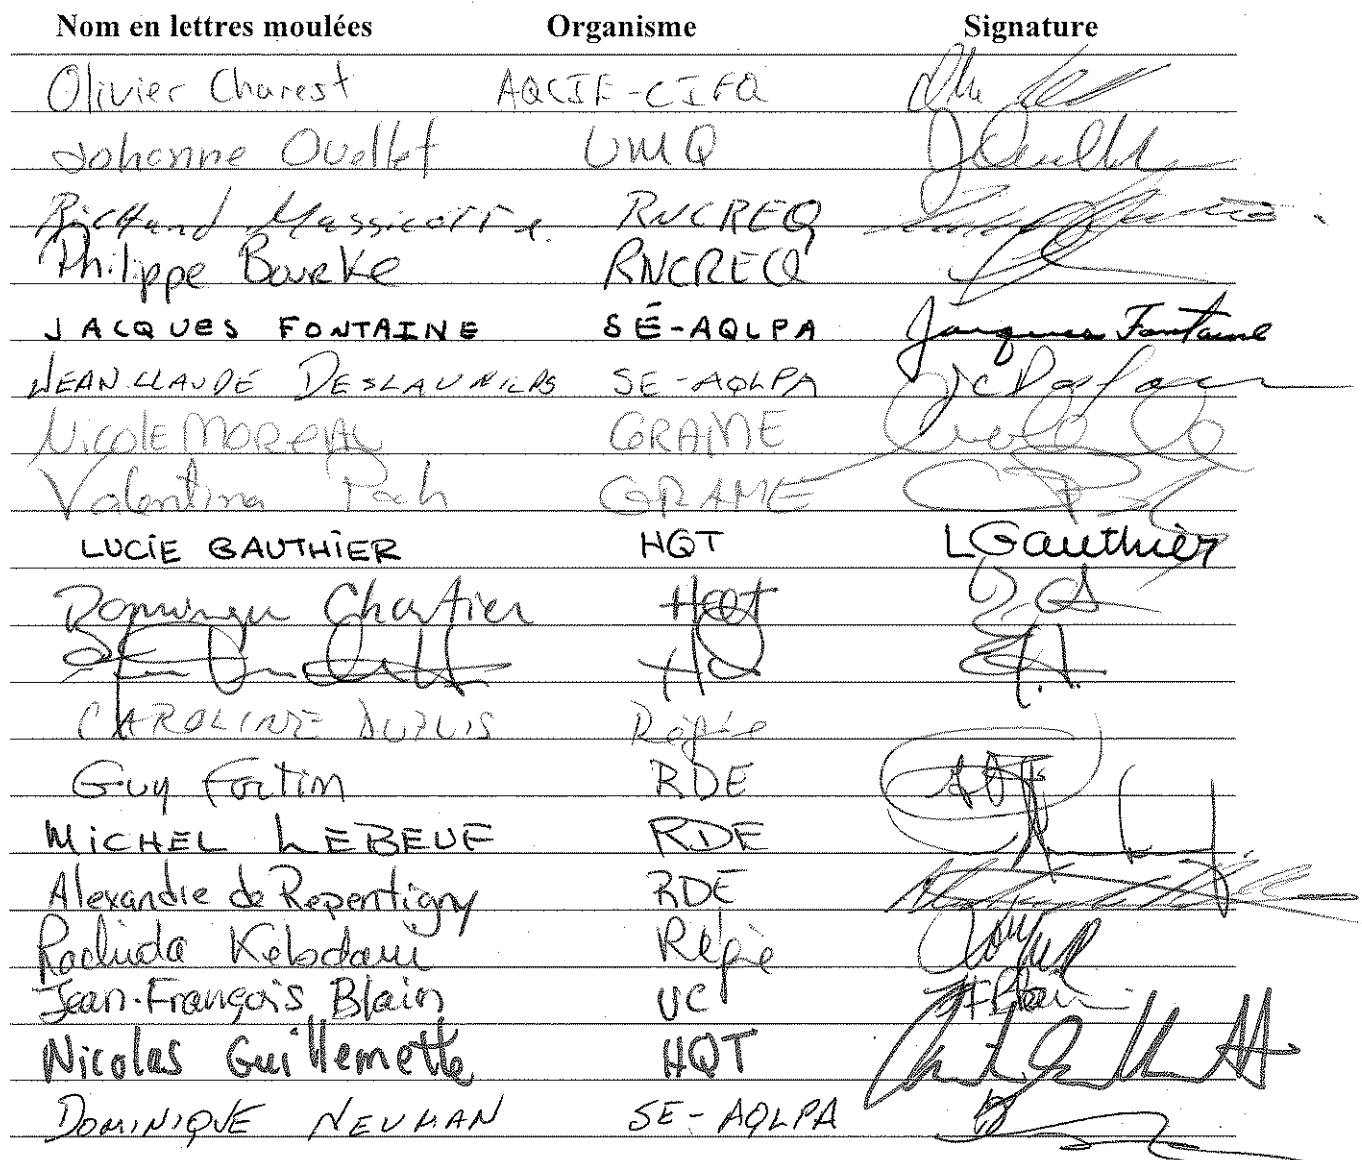 Nom en lettres moulées Organisme Signature
Olivier Charest AQCIE-CIFQ
Johanne Ouellet UMQ J Ouellet
Richard Massicotte RNCREQ
Philippe Bourke RNCREQ
JACQUES FONTAINE SÉ-AQLPA Jacques Fontaine
JEAN CLAUDE DESLAURIERS SE-AQLPA
Nicole MOREAU GRAME
Valentina Poch GRAME
LUCIE GAUTHIER HQT LGauthier
Dominique Chartier HQT
CAROLINE DUPUIS Régie
Guy Fortin RDE
MICHEL LEBEUF RDE
Alexandre de Repentigny RDE
Rachida Kebdani Régie
Jean-François Blain UC JF Blain
Nicolas Guillemette HQT
DOMINIQUE NEUMAN SE-AQLPA